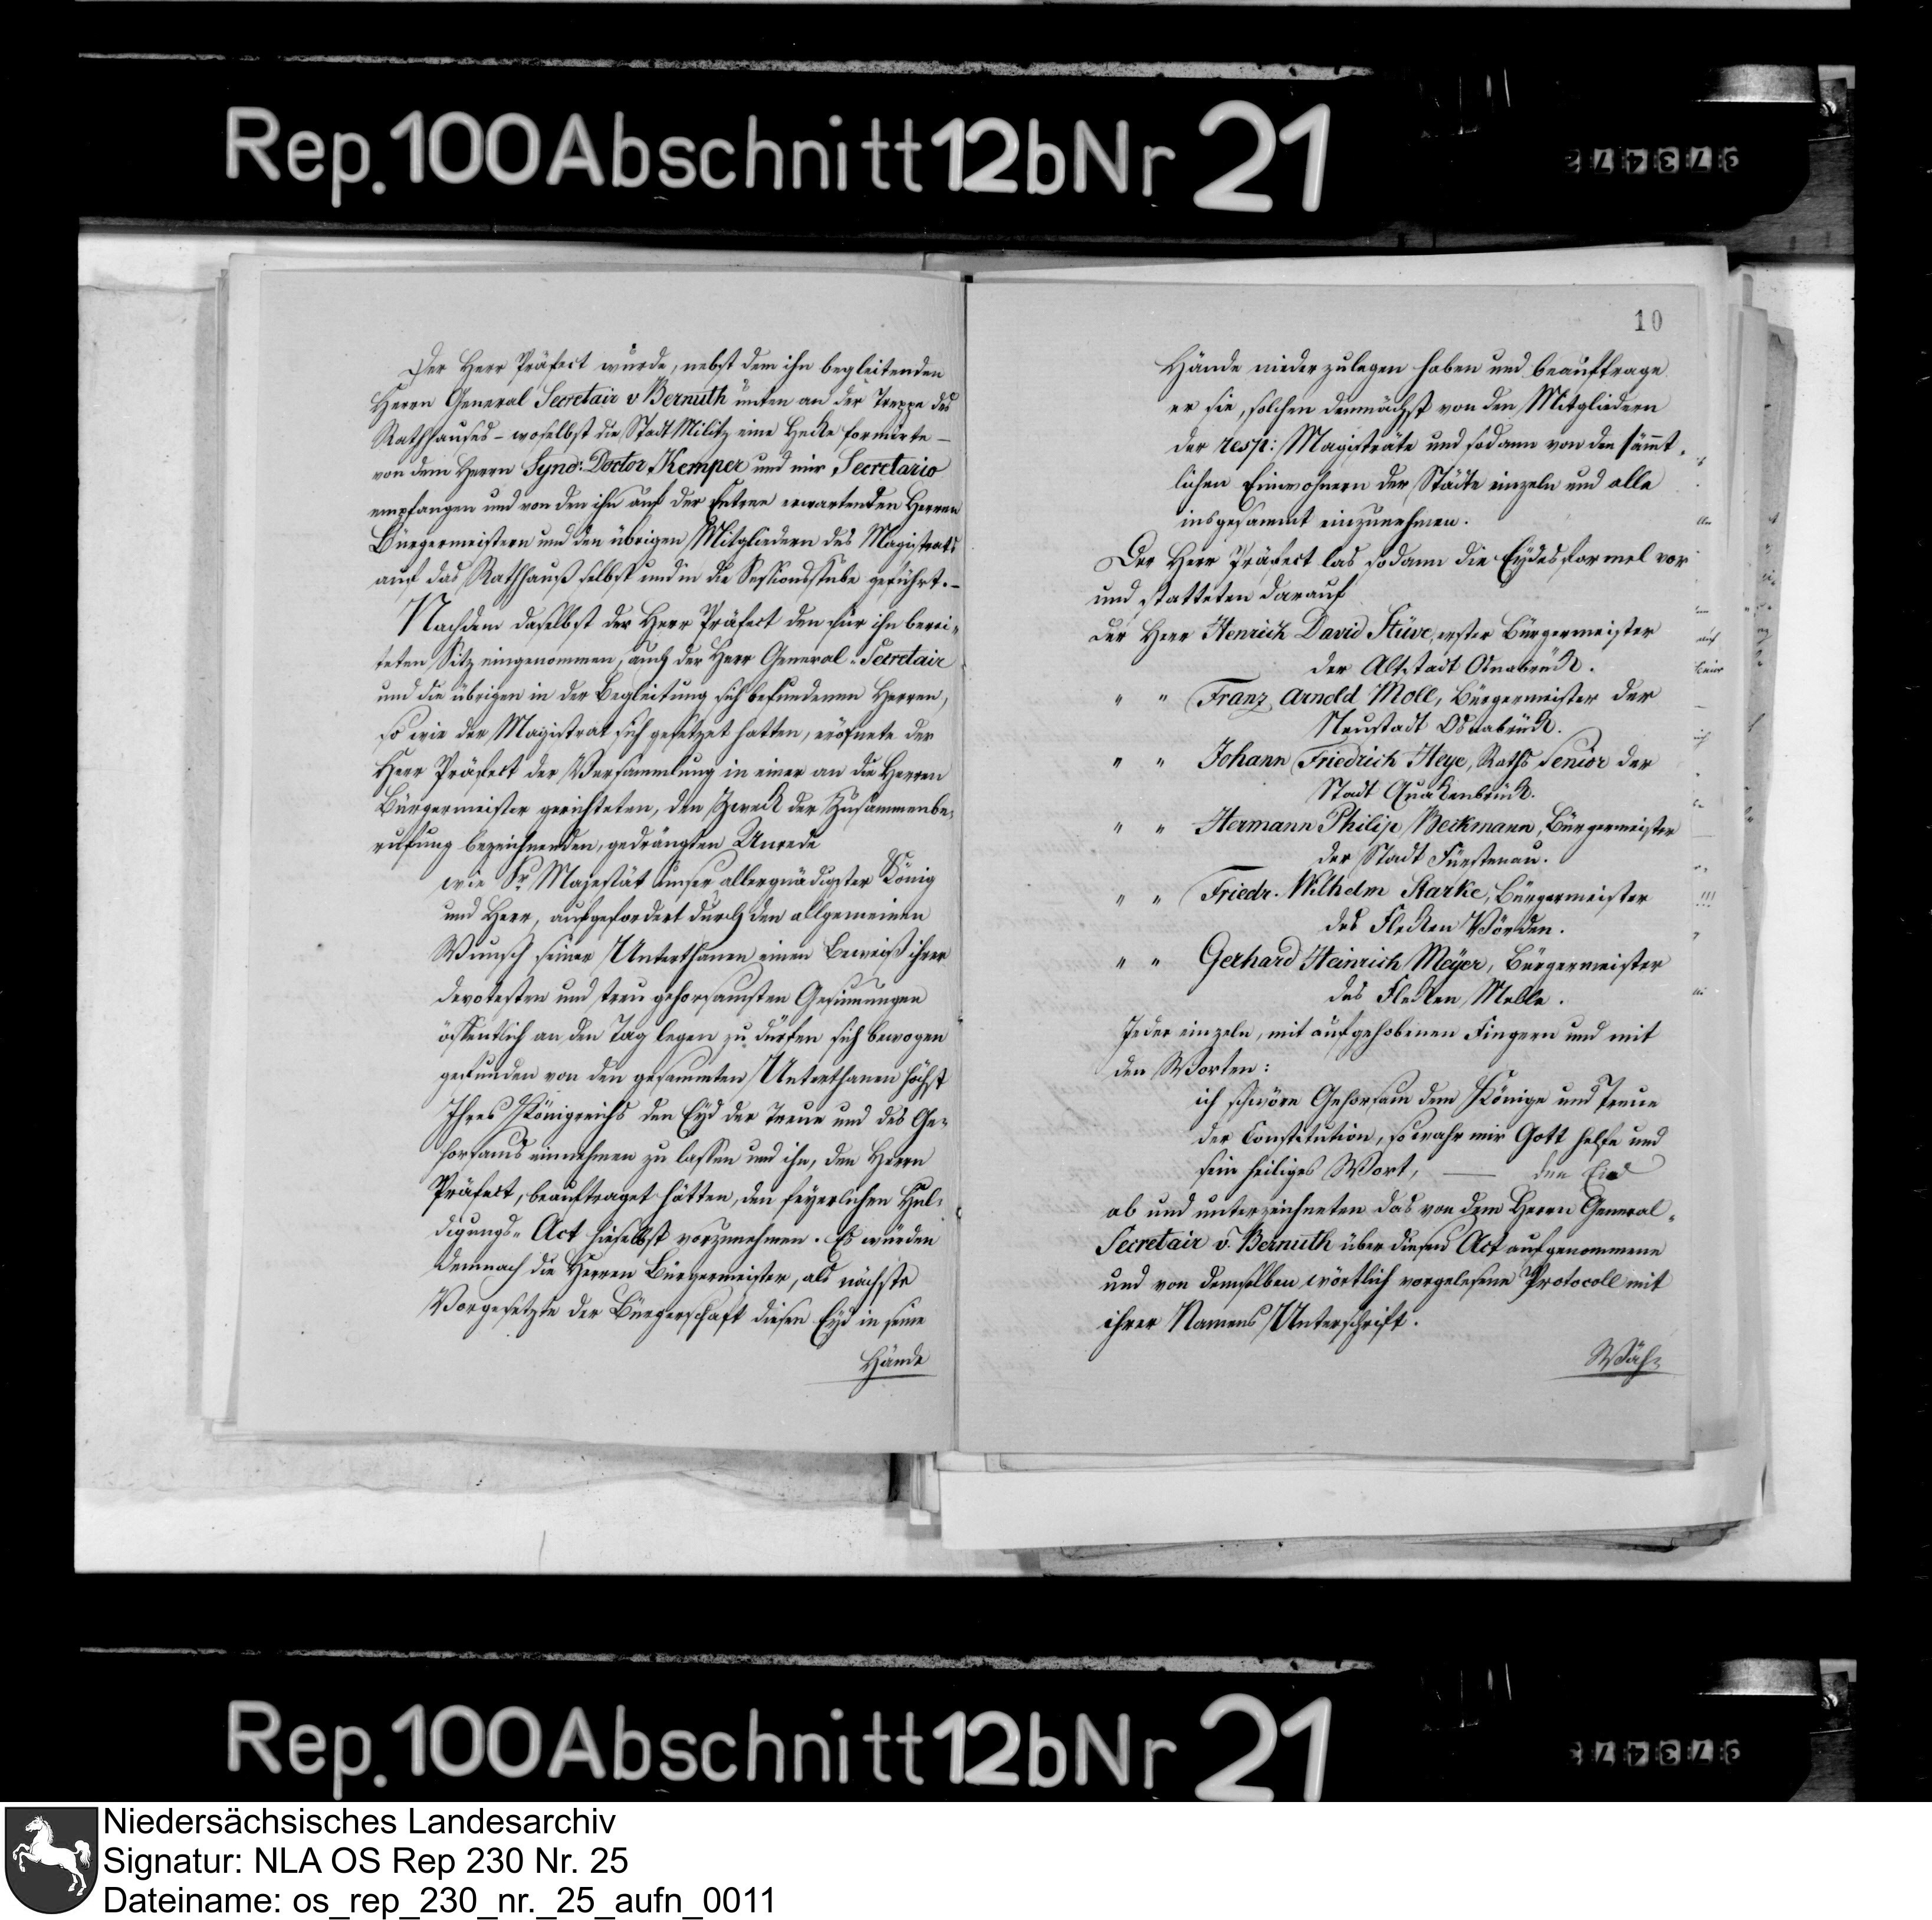 Rep. 100 Abschnitt 12b Nr 21
Der Herr Präfect wurde, nebst dem ihn begleitenden
Herrn General Secretair v Bernuth unten an der Treppe des
Rathhauses – woselbst die Stadt Militz eine Hecke formirte –
von dem Herrn Synd: Doctor Kemper und mir Secretario
empfangen und von den ihn auf der Entree erwartenden Herren
Bürgermeistern und den übrigen Mitgliedern des Magistrats
auf das Rathhauß selbst und in die Sessionsstube geführt. –
Nachdem daselbst der Herr Präfect den für ihn berei-
teten Sitz eingenommen, auch der Herr General-Secretair
und die übrigen in der Begleitung sich befundenen Herren,
so wie der Magistrat sich gesetzet hatten, eröfnete der
Herr Präfect der Versammlung in einer an die Herren
Bürgermeister gerichteten, den Zweck der Zusammenbe-
rufung bezeichnenden, gedrängten Anrede
wie Sr Majestät unser allergnädigster König
und Herr, aufgefordert durch den allgemeinen
Wunsch seiner Unterthanen einen Beweiß ihrer
devotesten und treu gehorsamsten Gesinnungen
öffentlich an den Tag legen zu dürfen sich bewogen
gefunden von den gesammten Unterthanen höchst
Ihres Königreichs den Eyd der Treue und des Ge-
horsams einnehmen zu lassen und ihn, den Herrn
Präfect, beauftraget hätten, den feyerlichen Hul-
digungs-Act hieselbst vorzunehmen. Es würden
demnach die Herren Bürgermeister, als nächste
Vorgesetzte der Bürgerschaft diesen Eyd in seine
Hände
10
Hände niederzulegen haben und beauftrage
er sie, solchen demnächst von den Mitgliedern
der resp: Magisträte und sodann von den sämmt-
lichen Einwohnern der Städte einzeln und alle
insgesammt einzunehmen.
Der Herr Präfect las sodann die Eydesformel vor
und statteten darauf
der Herr Henrich David Stüve, erster Bürgermeister
der Altstadt Osnabrück.
" " Franz Arnold Moll, Bürgermeister der
Neustadt Osnabrück.
" " Johann Friedrich Heye, Raths Senior der
Stadt Quakenbrück.
" " Hermann Philip Beckmann, Bürgermeister
der Stadt Fürstenau.
" " Friedr. Wilhelm Starke, Bürgermeister
des Flecken Vörden.
" " Gerhard Heinrich Meÿer, Bürgermeister
des Flecken Melle.
Jeder einzeln, mit aufgehobenen Fingern und mit
den Worten:
ich schwöre Gehorsam dem Könige und Treue
der Constitution, so wahr mir Gott helfe und
sein heiliges Wort, — den Eid
ab und unterzeichneten das von dem Herrn General-
Secretair v. Bernuth über diesen Act aufgenommene
und von demselben wörtlich vorgelesene Protocoll mit
ihrer Namens Unterschrift.
Wäh-
Rep. 100 Abschnitt 12b Nr 21
Niedersächsisches Landesarchiv
Signatur: NLA OS Rep 230 Nr. 25
Dateiname: os_rep_230_nr._25_aufn_0011